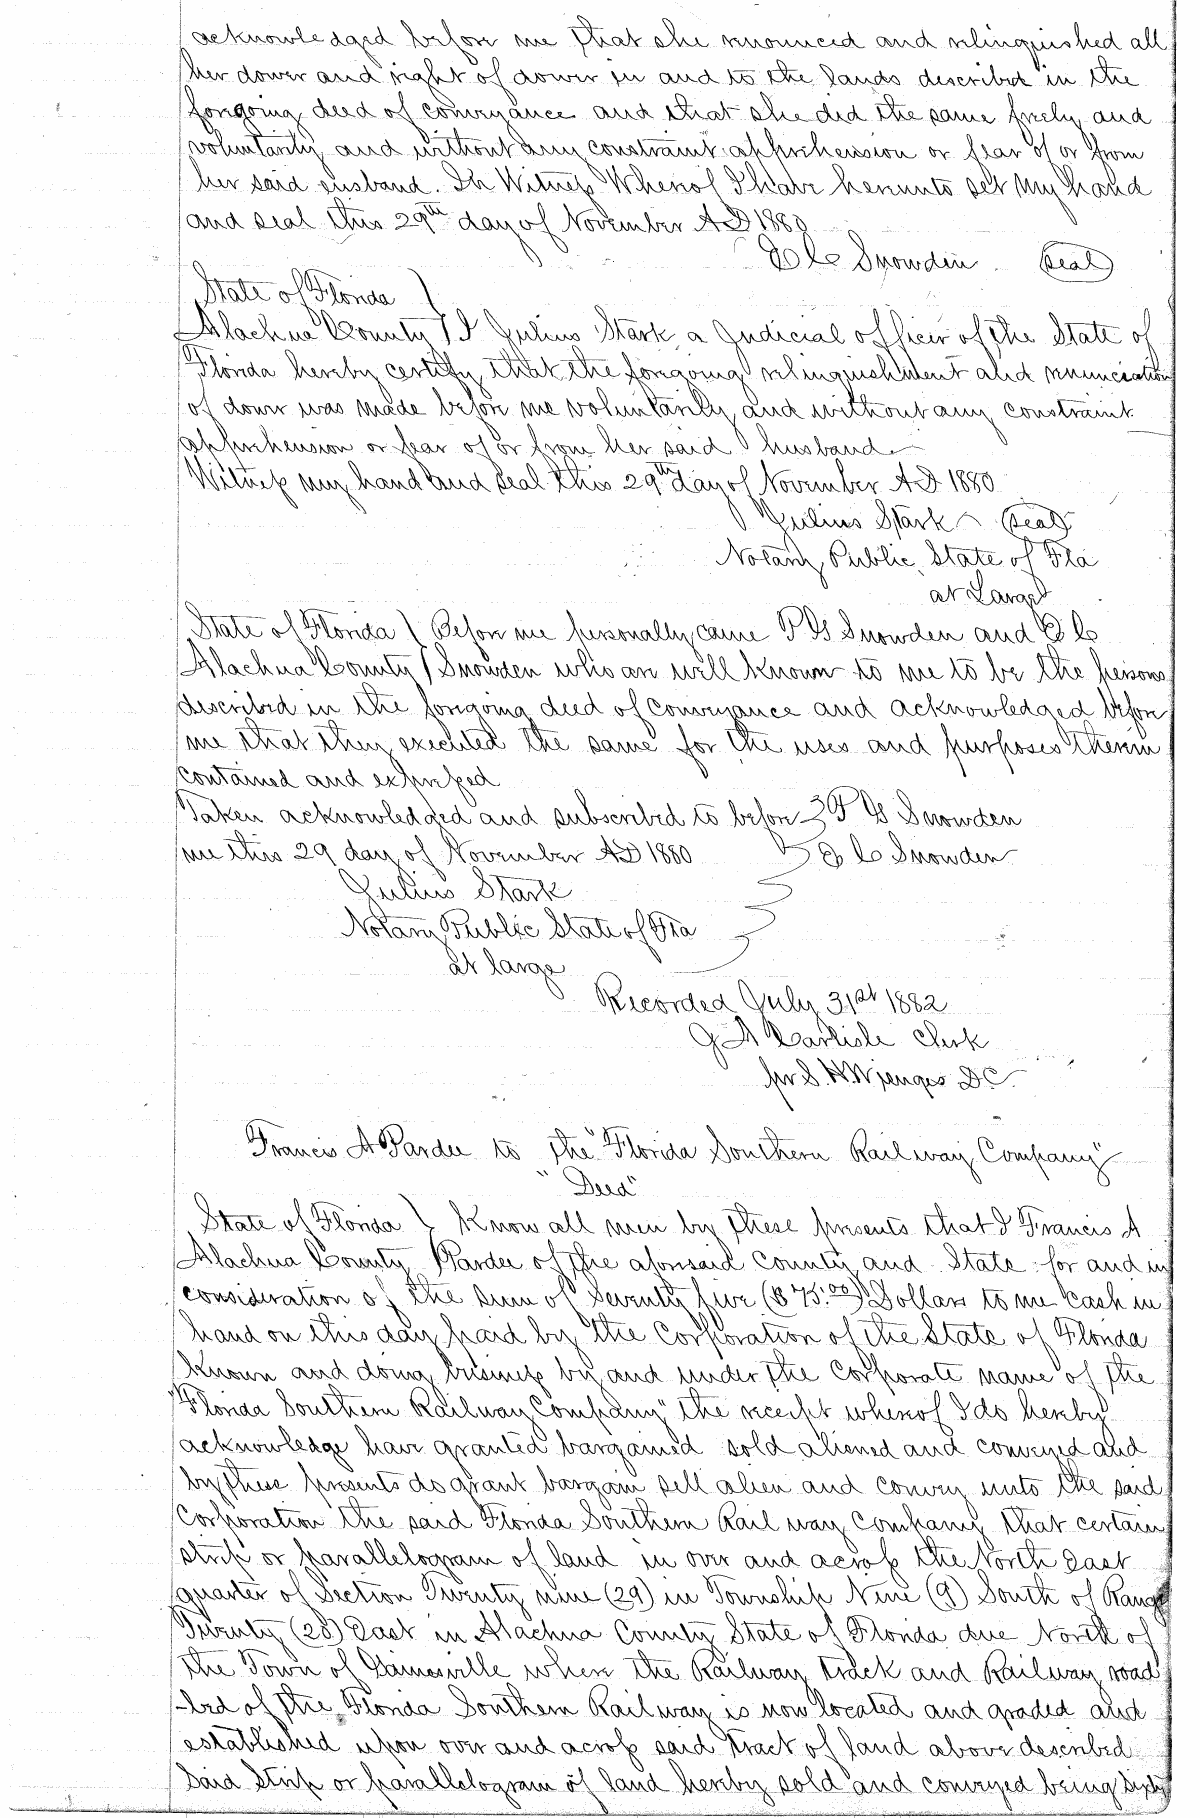 acknowledged before me that she renounced and relinquished all
her dower and right of dower in and to the lands described in the
forgoing deed of conveyance and that she did the same freely and
voluntarily and without any constraint apprehension or fear of or from
her said husband. In Witness Whereof I have hereunto set my hand
and seal this 29th day of November AD 1880
E C Snowden (seal)
State of Florida }
Alachua County } I Julius Stark a Judicial officer of the State of
Florida hereby certify that the foregoing relinquishment and renunciation
of dower was made before me voluntarily and without any constraint
apprehension or fear of or from her said husband
Witness my hand and seal this 29th day of November AD 1880
Julius Stark (seal)
Notary Public State of Fla
at Large
State of Florida } Before me personally came P G Snowden and E C
Alachua County } Snowden who are well known to me to be the persons
described in the foregoing deed of conveyance and acknowledged before
me that they executed the same for the uses and purposes therein
contained and expressed
Taken acknowledged and subscribed to before } P G Snowden
me this 29 day of November AD 1880 } E C Snowden
Julius Stark
Notary Public State of Fla
at large
Recorded July 31st 1882
J A Carlisle Clerk
per S. H. Wienges D.C.
Francis A Pardee to the "Florida Southern Railway Company"
"Deed"
State of Florida } Know all men by these presents that I Francis A
Alachua County Pardee of the aforesaid County and State for and in
consideration of the sum of Seventy five ($75.00) Dollars to me cash in
hand on this day paid by the Corporation of the State of Florida
known and doing business by and under the corporate name of the
"Florida Southern Railway Company" the receipt whereof I do hereby
acknowledge have granted bargained sold aliened and conveyed and
by these presents do grant bargain sell alien and convey unto the said
Corporation the said Florida Southern Rail way Company that certain
strip or parallelogram of land in over and across the North East
quarter of Section Twenty nine (29) in Township Nine (9) South of Range
Twenty (20) East in Alachua County State of Florida due North of
the Town of Gainesville where the Railway track and Railway road
-bed of the Florida Southern Railway is now located and graded and
established upon over and across said tract of land above described
Said Strip or parallelogram of land hereby sold and conveyed being sixty